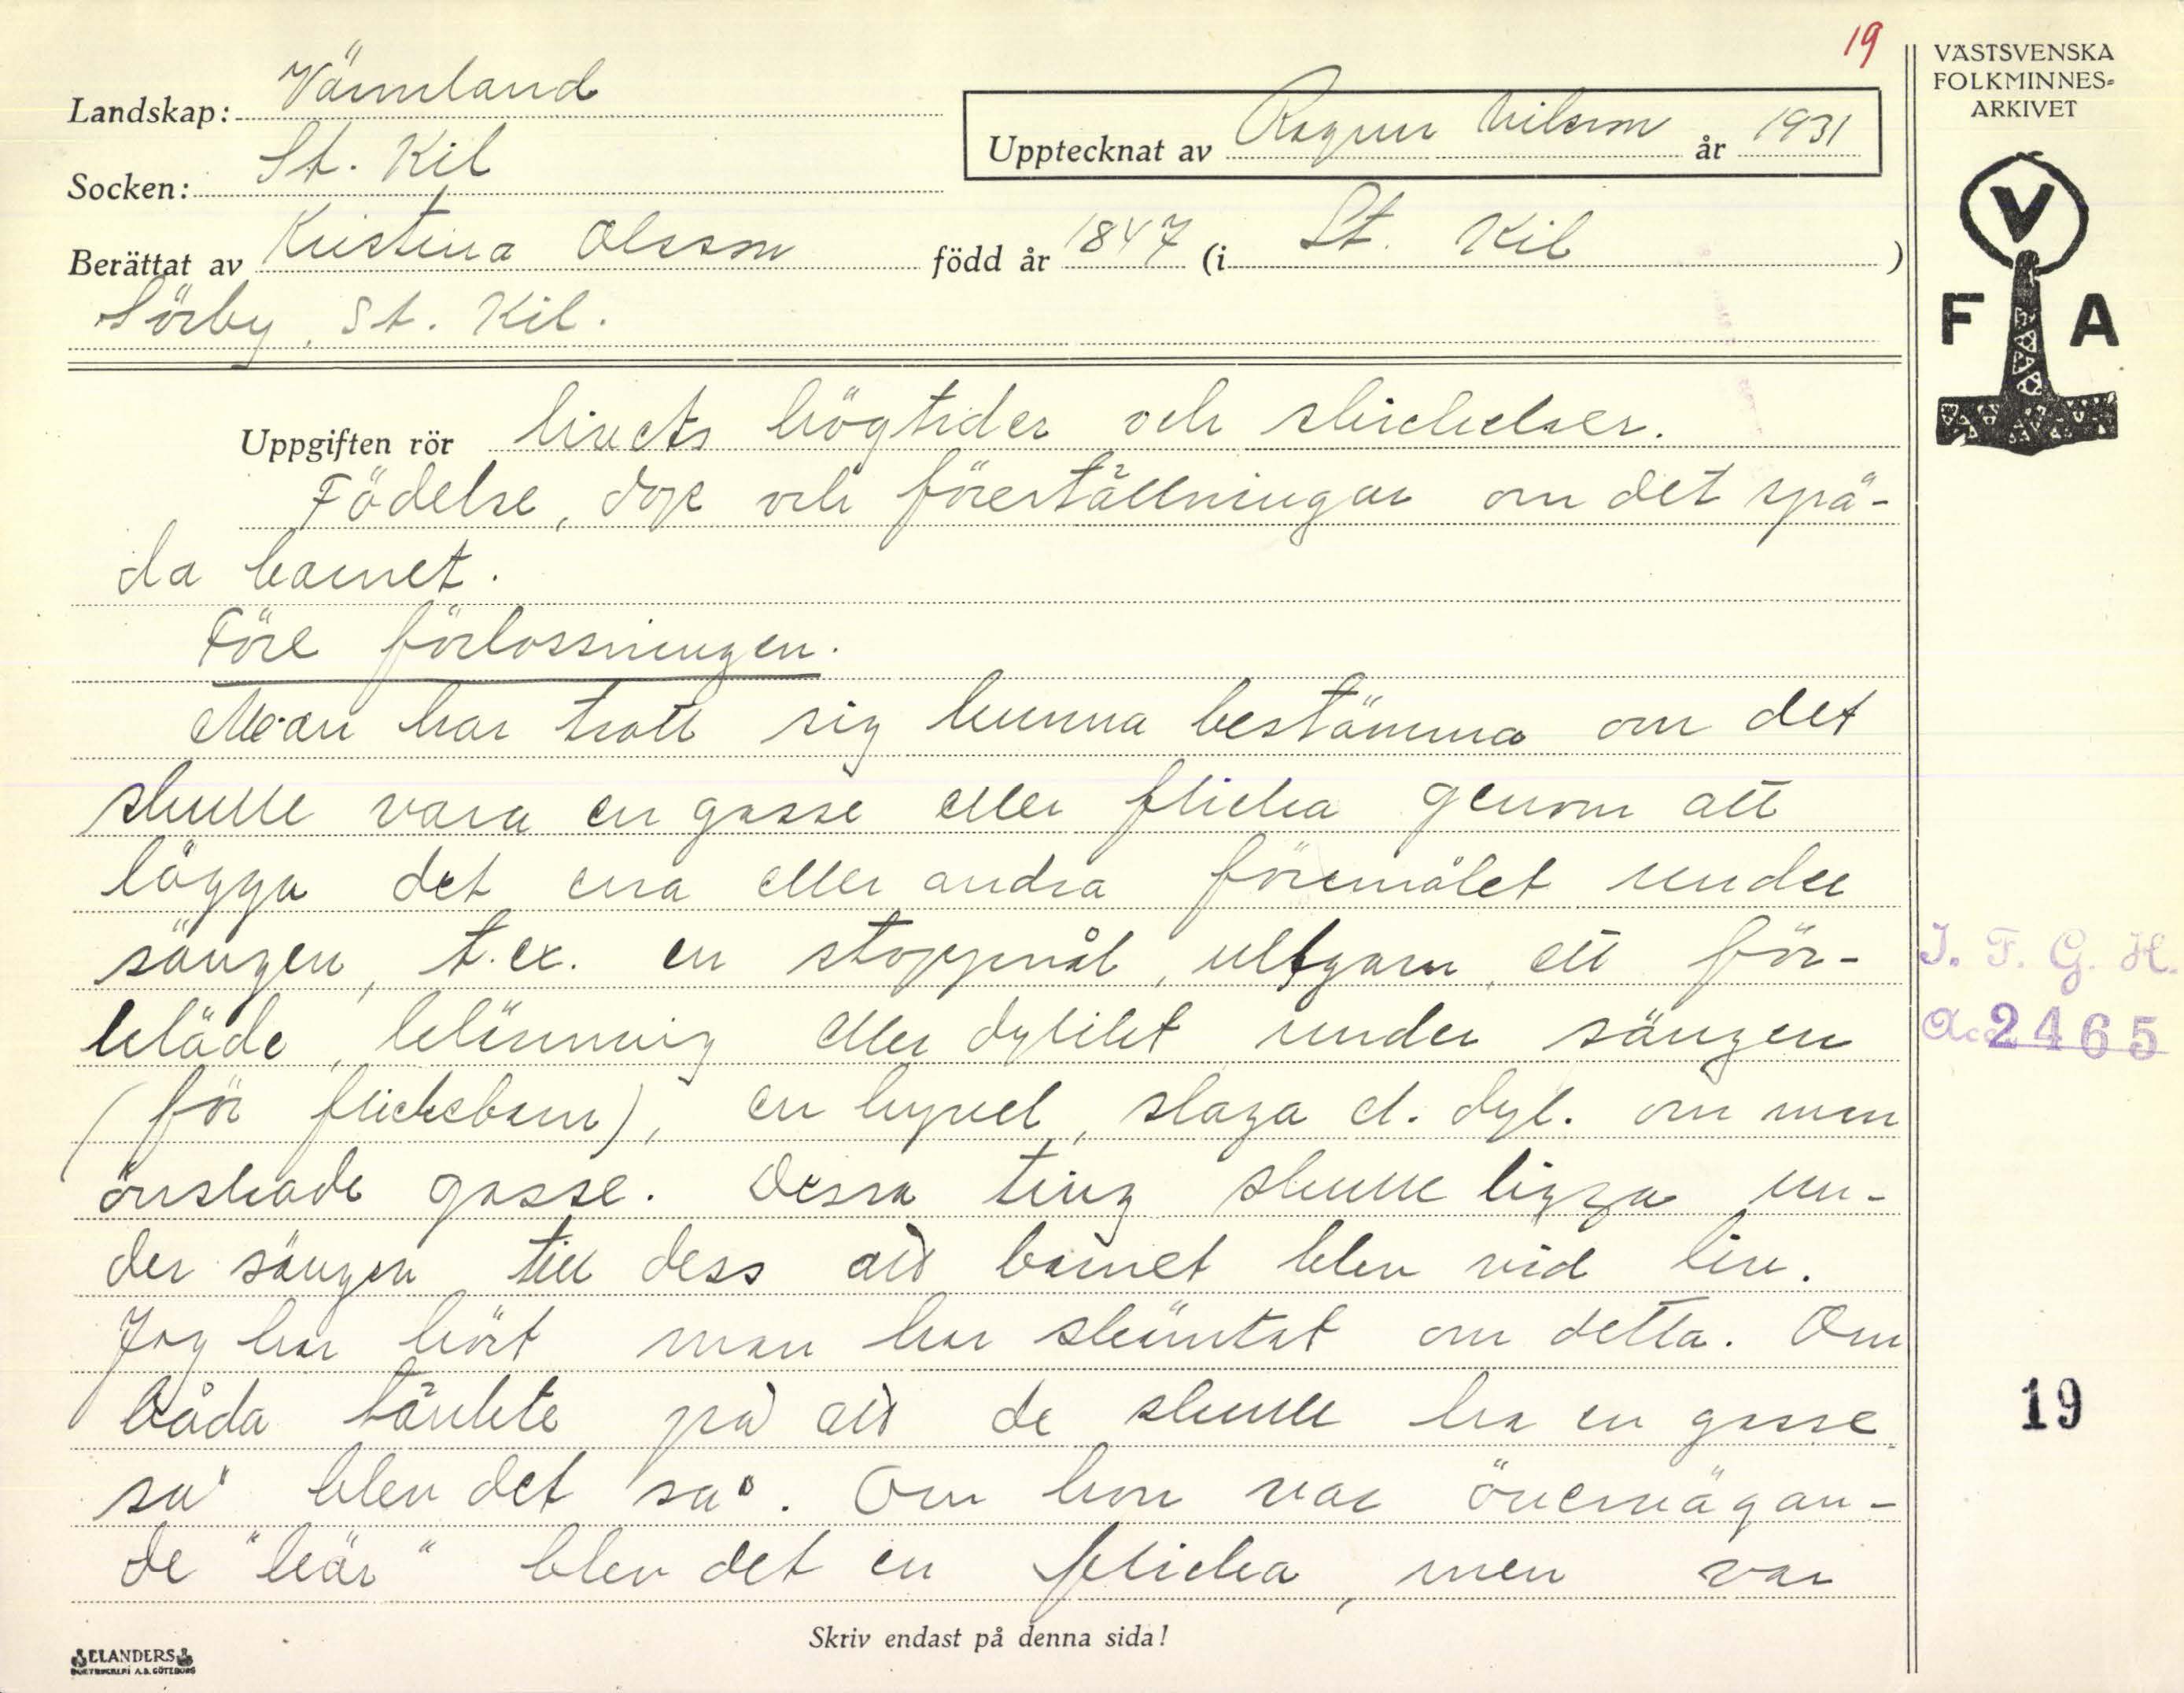 19
VÄSTSVENSKA
FOLKMINNES-
ARKIVET
Landskap: Värmland
Upptecknat av Ragnar Nilsson år 1931
Socken: St. Kil
Berättat av Kristina Olsson född år 1847 (i St. Kil)
Sörby, St. Kil.
V
F A
Uppgiften rör livets högtider och skickelser.
Födelse, dop och föreställningar om det spä-
da barnet.
Före förlossningen.
Man har trott sig kunna bestämma om det
skulle vara en gosse eller flicka genom att
lägga det ena eller andra föremålet under
sängen, t.ex. en stoppnål, ullgarn, ett för-
kläde, klänning eller dylikt under sängen
(för flickebarn), en hyvel, slaga el. dyl. om man
önskade gosse. Dessa ting skulle ligga un-
der sängen till dess att barnet blev vid liv.
Jag har hört man har skämtat om detta. Om
båda tänkte på att de skulle ha en gosse
så blev det så. Om hon var övervägan-
de "kär" blev det en flicka, men var
J. F. G. H.
Acc 2465
19
Skriv endast på denna sida!
ELANDERS
BOKTRYCKERI A.B. GÖTEBORG